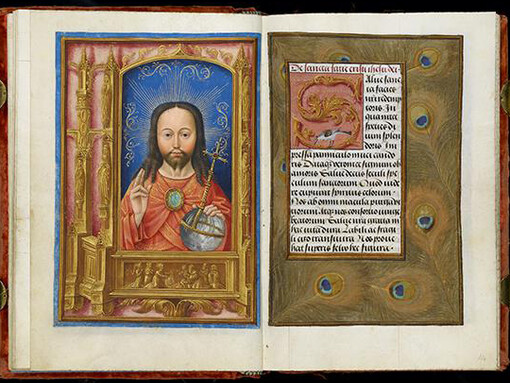 De sancta facie cristi ihesu dei
Salue sanc
ta facies
nri redemp
toris. In
qua nitet
species di
uini splen
doris. Im
pressa panniculo niuei cando
ris Dataqz veronice signum ob
amoris Salue decus seculi spe
culum sanctorum Quod vide
re cupiunt spiritus celorum.
Nos ab omni macula purga vi
ciorum. Atqz nos consortio iunge
beatorum Salue gloria in
hac vita dura Labili ac fragi
li cito transitura Nos
superis felix hec figura.